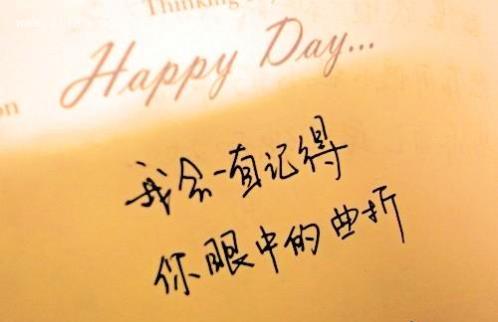 Thinking
Happy Day...
on
我会一直记得
你眼中的曲折